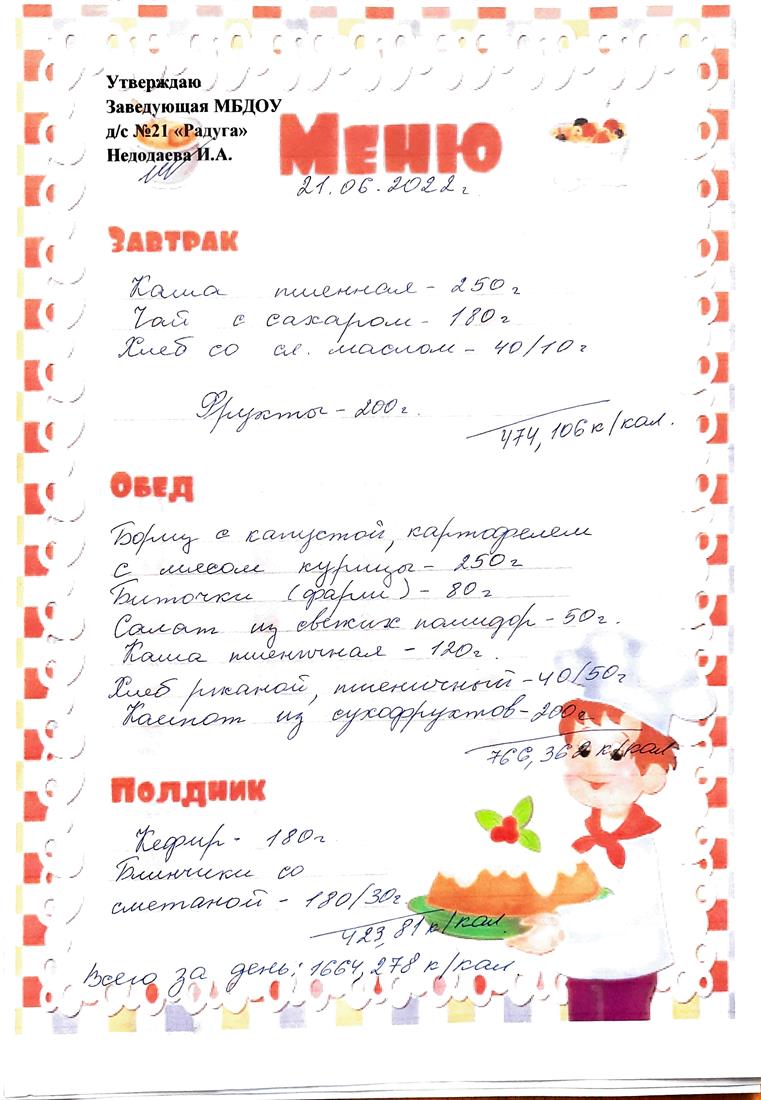 Утверждаю
Заведующая МБДОУ
д/с №21 «Радуга»
Недодаева И.А.
Меню
21.06.2022г.
Завтрак
Каша пшенная - 250г
Чай с сахаром - 180г
Хлеб со сл. маслом - 40/10г
Фрукты - 200г.
474,106 к/кал.
Обед
Борщ с капустой, картофелем
с мясом курицы - 250г
Биточки (фарш) - 80г
Салат из свежих помидор - 50г.
Каша пшеничная - 120г.
Хлеб ржаной, пшеничный - 40/50г
Компот из сухофруктов - 200г
766,362 к/кал
Полдник
Кефир - 180г
Блинчики со
сметаной - 180/30г.
423,81 к/кал.
Всего за день: 1664,278 к/кал.